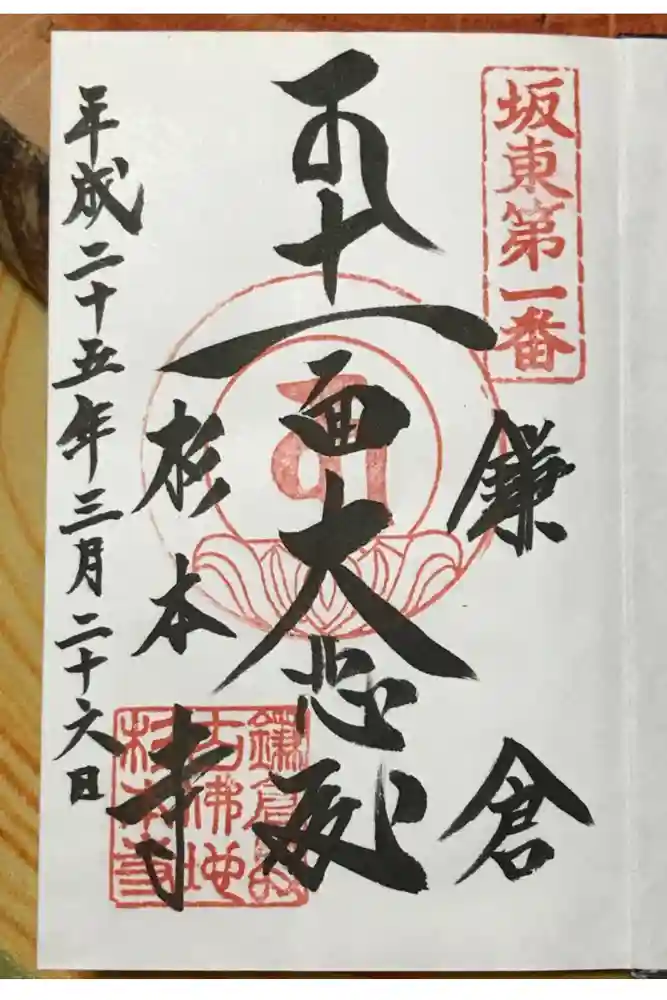 坂東第一番
鎌倉
十一面大悲殿
杉本寺
平成二十五年三月二十六日
鎌倉最
古佛地
杉本寺